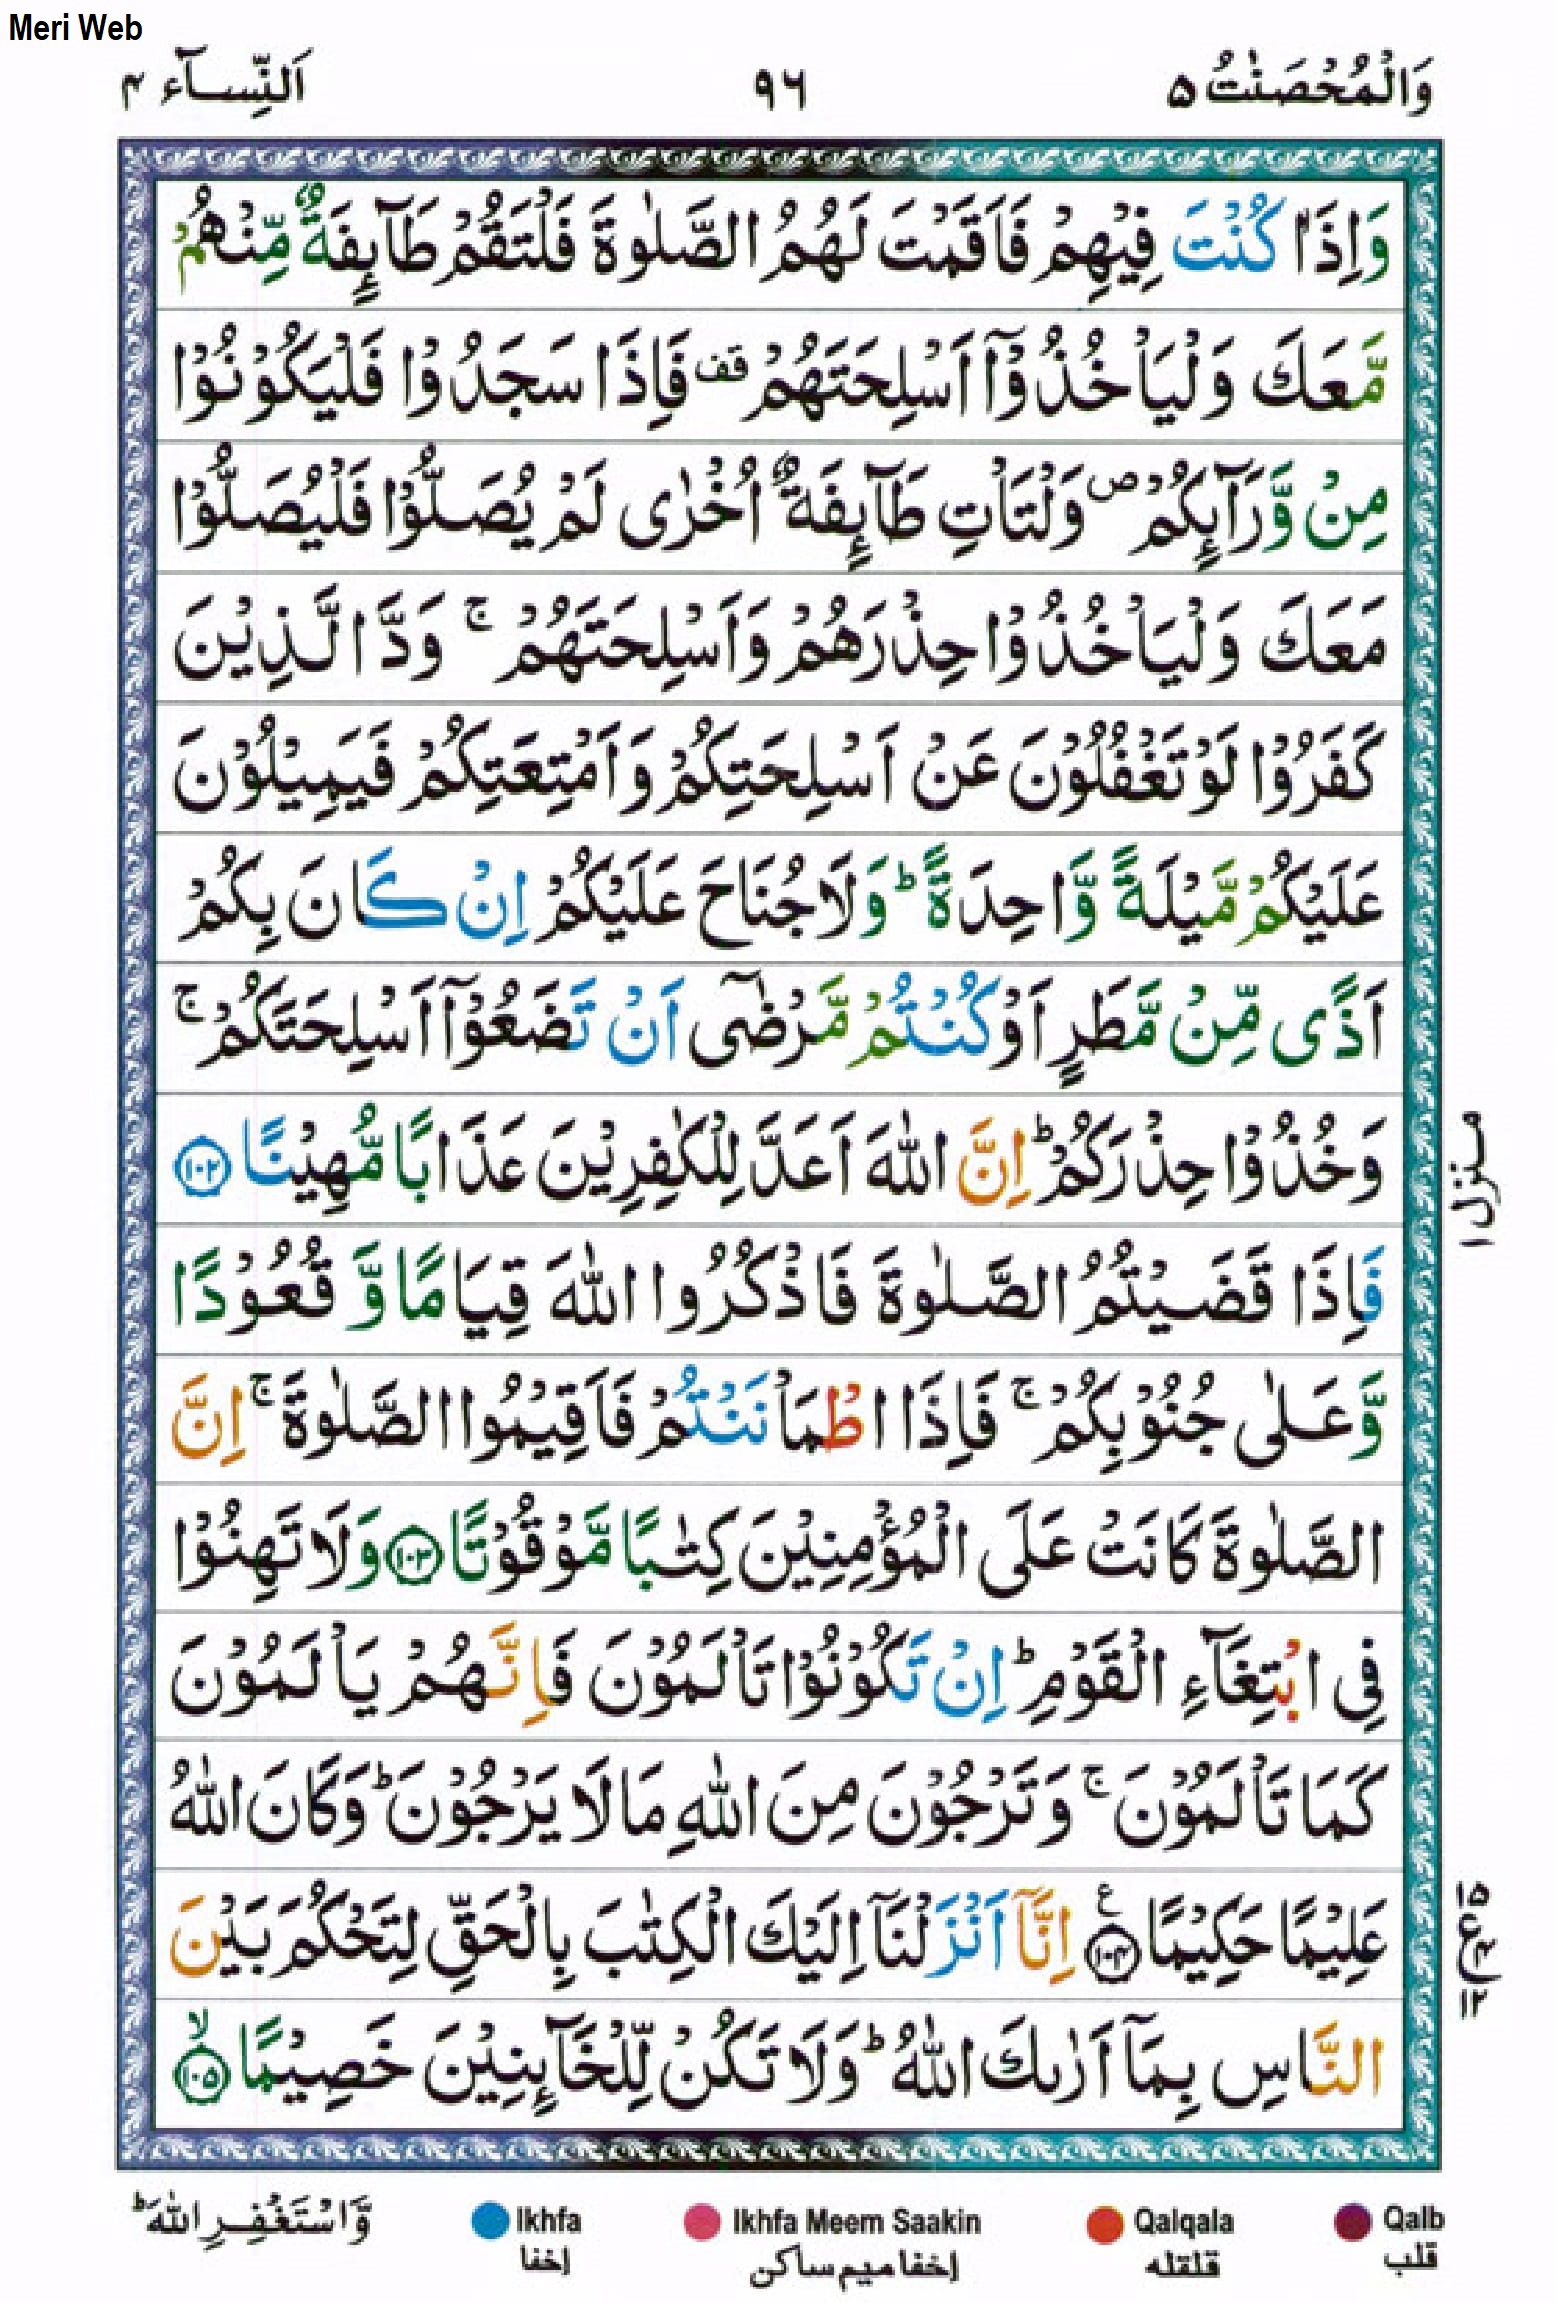 Meri Web
وَالْمُحْصَنٰتُ ۵
۹۶
اَلنِّسَآء ۴
وَاِذَا كُنْتَ فِيْهِمْ فَاَقَمْتَ لَهُمُ الصَّلٰوةَ فَلْتَقُمْ طَآئِفَةٌ مِّنْهُمْ
مَّعَكَ وَلْيَاْخُذُوْۤا اَسْلِحَتَهُمْ قف فَاِذَا سَجَدُوْا فَلْيَكُوْنُوْا
مِنْ وَّرَآئِكُمْ ص وَلْتَاْتِ طَآئِفَةٌ اُخْرٰى لَمْ يُصَلُّوْا فَلْيُصَلُّوْا
مَعَكَ وَلْيَاْخُذُوْا حِذْرَهُمْ وَاَسْلِحَتَهُمْ ۚ وَدَّ الَّذِيْنَ
كَفَرُوْا لَوْ تَغْفُلُوْنَ عَنْ اَسْلِحَتِكُمْ وَاَمْتِعَتِكُمْ فَيَمِيْلُوْنَ
عَلَيْكُمْ مَّيْلَةً وَّاحِدَةً ؕ وَلَا جُنَاحَ عَلَيْكُمْ اِنْ كَانَ بِكُمْ
اَذًى مِّنْ مَّطَرٍ اَوْ كُنْتُمْ مَّرْضٰۤى اَنْ تَضَعُوْۤا اَسْلِحَتَكُمْ ۚ
وَخُذُوْا حِذْرَكُمْ ؕ اِنَّ اللّٰهَ اَعَدَّ لِلْكٰفِرِيْنَ عَذَابًا مُّهِيْنًا ۱۰۲
فَاِذَا قَضَيْتُمُ الصَّلٰوةَ فَاذْكُرُوا اللّٰهَ قِيَامًا وَّ قُعُوْدًا
وَّعَلٰى جُنُوْبِكُمْ ۚ فَاِذَا اطْمَاْنَنْتُمْ فَاَقِيْمُوا الصَّلٰوةَ ۚ اِنَّ
الصَّلٰوةَ كَانَتْ عَلَى الْمُؤْمِنِيْنَ كِتٰبًا مَّوْقُوْتًا ۱۰۳ وَلَا تَهِنُوْا
فِى ابْتِغَآءِ الْقَوْمِ ؕ اِنْ تَكُوْنُوْا تَاْلَمُوْنَ فَاِنَّهُمْ يَاْلَمُوْنَ
كَمَا تَاْلَمُوْنَ ۚ وَتَرْجُوْنَ مِنَ اللّٰهِ مَا لَا يَرْجُوْنَ ؕ وَكَانَ اللّٰهُ
عَلِيْمًا حَكِيْمًا ۱۰۴ ع اِنَّاۤ اَنْزَلْنَاۤ اِلَيْكَ الْكِتٰبَ بِالْحَقِّ لِتَحْكُمَ بَيْنَ
النَّاسِ بِمَاۤ اَرٰىكَ اللّٰهُ ؕ وَلَا تَكُنْ لِّلْخَآئِنِيْنَ خَصِيْمًا ۙ ۱۰۵
منزل ۱
۱۵
ع ۴
۱۲
وَّاسْتَغْفِرِ اللّٰهَ ؕ
Ikhfa
اخفا
Ikhfa Meem Saakin
اخفا میم ساکن
Qalqala
قلقله
Qalb
قلب